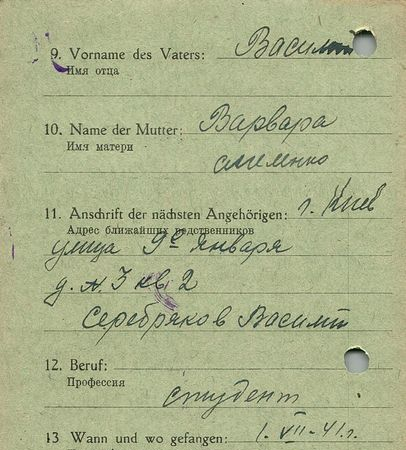 9. Vorname des Vaters: Васил
Имя отца
10. Name der Mutter: Варвара
Имя матери
11. Anschrift der nächsten Angehörigen: г. Киев
Адрес ближайших родственников
улица 9е Января
д. №. 3 кв 2
Серебряков Василий
12. Beruf:
Профессия
студент
13 Wann und wo gefangen: 1. VII-41г.